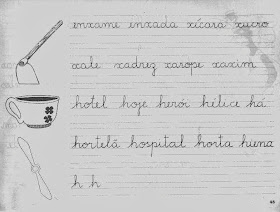 enxame enxada xícara xucro
xale xadrez xarope xaxim
hotel hoje herói hélice há
hortelã hospital horta hiena
h h